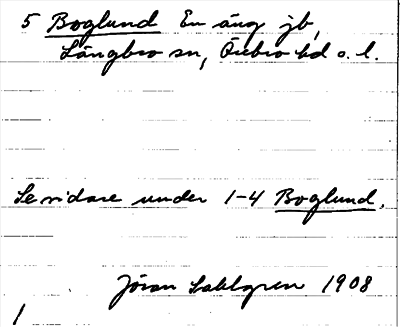 5 Boglund En äng jb,
Längbro sn, Örebro hd o. l.
Se vidare under 1-4 Boglund.
Jöran Sahlgren 1908
1